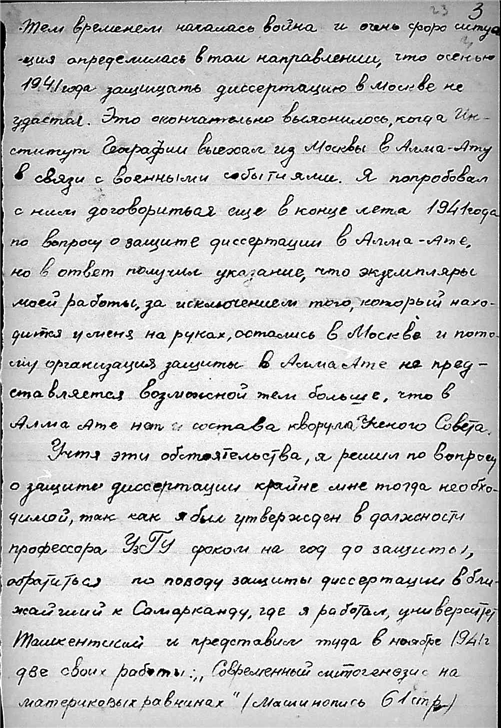 23 3
Тем временем началась война и очень скоро ситуа-
ция определилась в том направлении, что осенью
1941 года защищать диссертацию в Москве не
удастся. Это окончательно выяснилось, когда Ин-
ститут Географии выехал из Москвы в Алма-Ату
в связи с военными событиями. Я попробовал
с ним договориться еще в конце лета 1941 года
по вопросу о защите диссертации в Алма-Ате,
но в ответ получил указание, что экземпляры
моей работы, за исключением того, который нахо-
дится у меня на руках, остались в Москве и пото-
му организация защиты в Алма Ате не пред-
ставляется возможной тем больше, что в
Алма Ате нет и состава кворума Ученого Совета.
Учтя эти обстоятельства, я решил по вопросу
о защите диссертации крайне мне тогда необхо-
димой, так как я был утвержден в должности
профессора УзГУ сроком на год до защиты,
обратиться по поводу защиты диссертации в бли-
жайший к Самарканду, где я работал, университет
Ташкентский и представил туда в ноябре 1941 г
две своих работы: „Современный литогенезис на
материковых равнинах" (Машинопись 61 стр.)